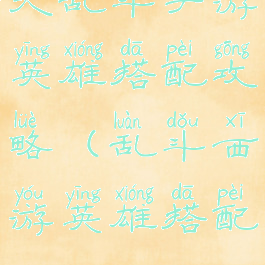 灵乱斗手游
yīng xióng dā pèi gōng
英雄搭配攻
luè luàn dǒu xī
略(乱斗西
yóu yīng xióng dā pèi
游英雄搭配